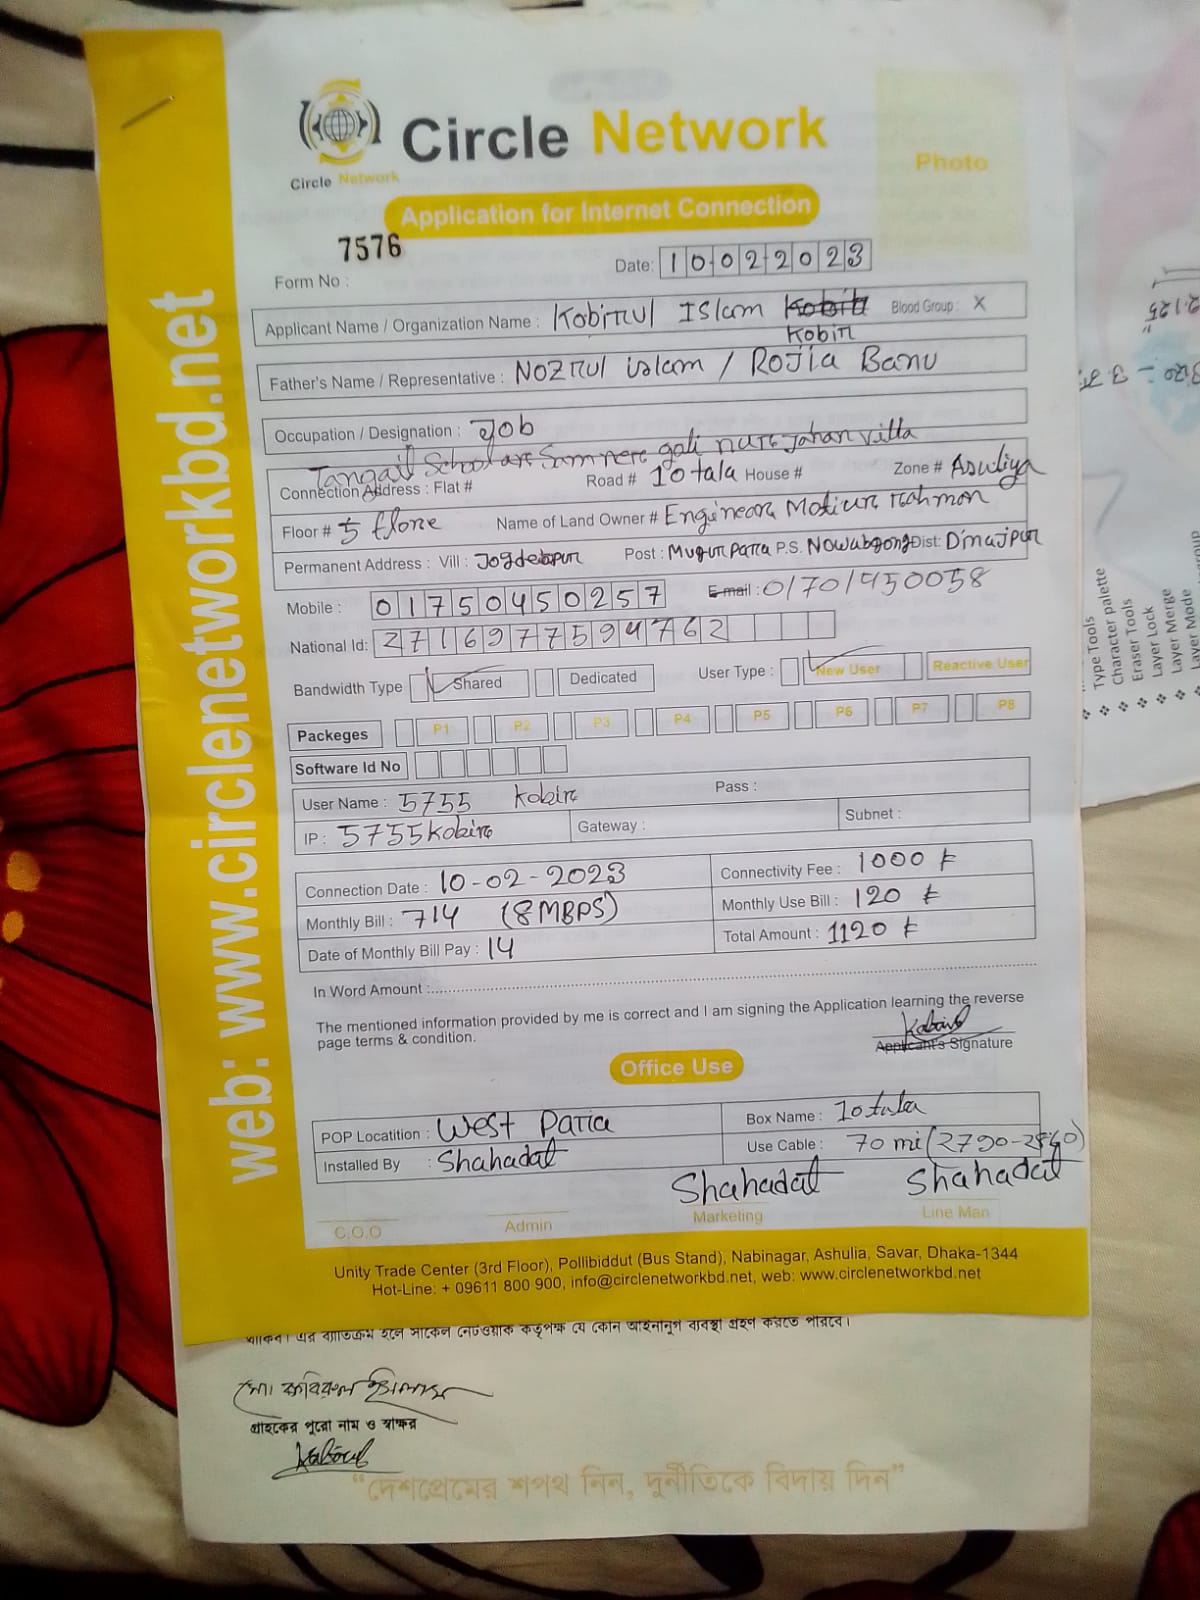 web: www.circlenetworkbd.net
Circle Network
Circle Network
Photo
Application for Internet Connection
7576
Form No :
Date: 10022023
Applicant Name / Organization Name : Kobirul Islam Kobir Blood Group : X
Kobir
Father's Name / Representative : Nozrul islam / Rojia Banu
Occupation / Designation : Job
Tangail School ar Samnere gali nure Jahan villa
Connection Address : Flat # Road # 10 tala House # Zone # Asuliya
Floor # 5 flore Name of Land Owner # Engineer Motiur rahmon
Permanent Address : Vill : Post : Mugurpara P.S. Nowabgong Dist: Dinajpur
Mobile : 01750450257 E-mail : 01701450058
National Id: 2716977594762
Bandwidth Type Shared Dedicated User Type : New User Reactive User
Packeges P1 P2 P3 P4 P5 P6 P7 P8
Software Id No
User Name : 5755 Kobir Pass :
IP : 5755Kobir Gateway : Subnet :
Connection Date : 10-02-2023 Connectivity Fee : 1000 ৳
Monthly Bill : 714 (8MBPS) Monthly Use Bill : 120 ৳
Date of Monthly Bill Pay : 14 Total Amount : 1120 ৳
In Word Amount :
The mentioned information provided by me is correct and I am signing the Application learning the reverse
page terms & condition.
Applicant's Signature
Office Use
POP Locatition : West Para Box Name : 10 tala
Installed By : Shahadat Use Cable : 70 mi (2790-2860)
Shahadat Shahadat
C.O.O Admin Marketing Line Man
Unity Trade Center (3rd Floor), Pollibiddut (Bus Stand), Nabinagar, Ashulia, Savar, Dhaka-1344
Hot-Line: + 09611 800 900, info@circlenetworkbd.net, web: www.circlenetworkbd.net
থাকিব। এর ব্যতিক্রম হলে সার্কেল নেটওয়ার্ক কর্তৃপক্ষ যে কোন আইনানুগ ব্যবস্থা গ্রহণ করতে পারবে।
মো। কবিরুল ইসলাম
গ্রাহকের পুরো নাম ও স্বাক্ষর
“দেশপ্রেমের শপথ নিন, দুর্নীতিকে বিদায় দিন”
Type Tools
Character palette
Eraser Tools
Layer Lock
Layer Merge
Layer Mode